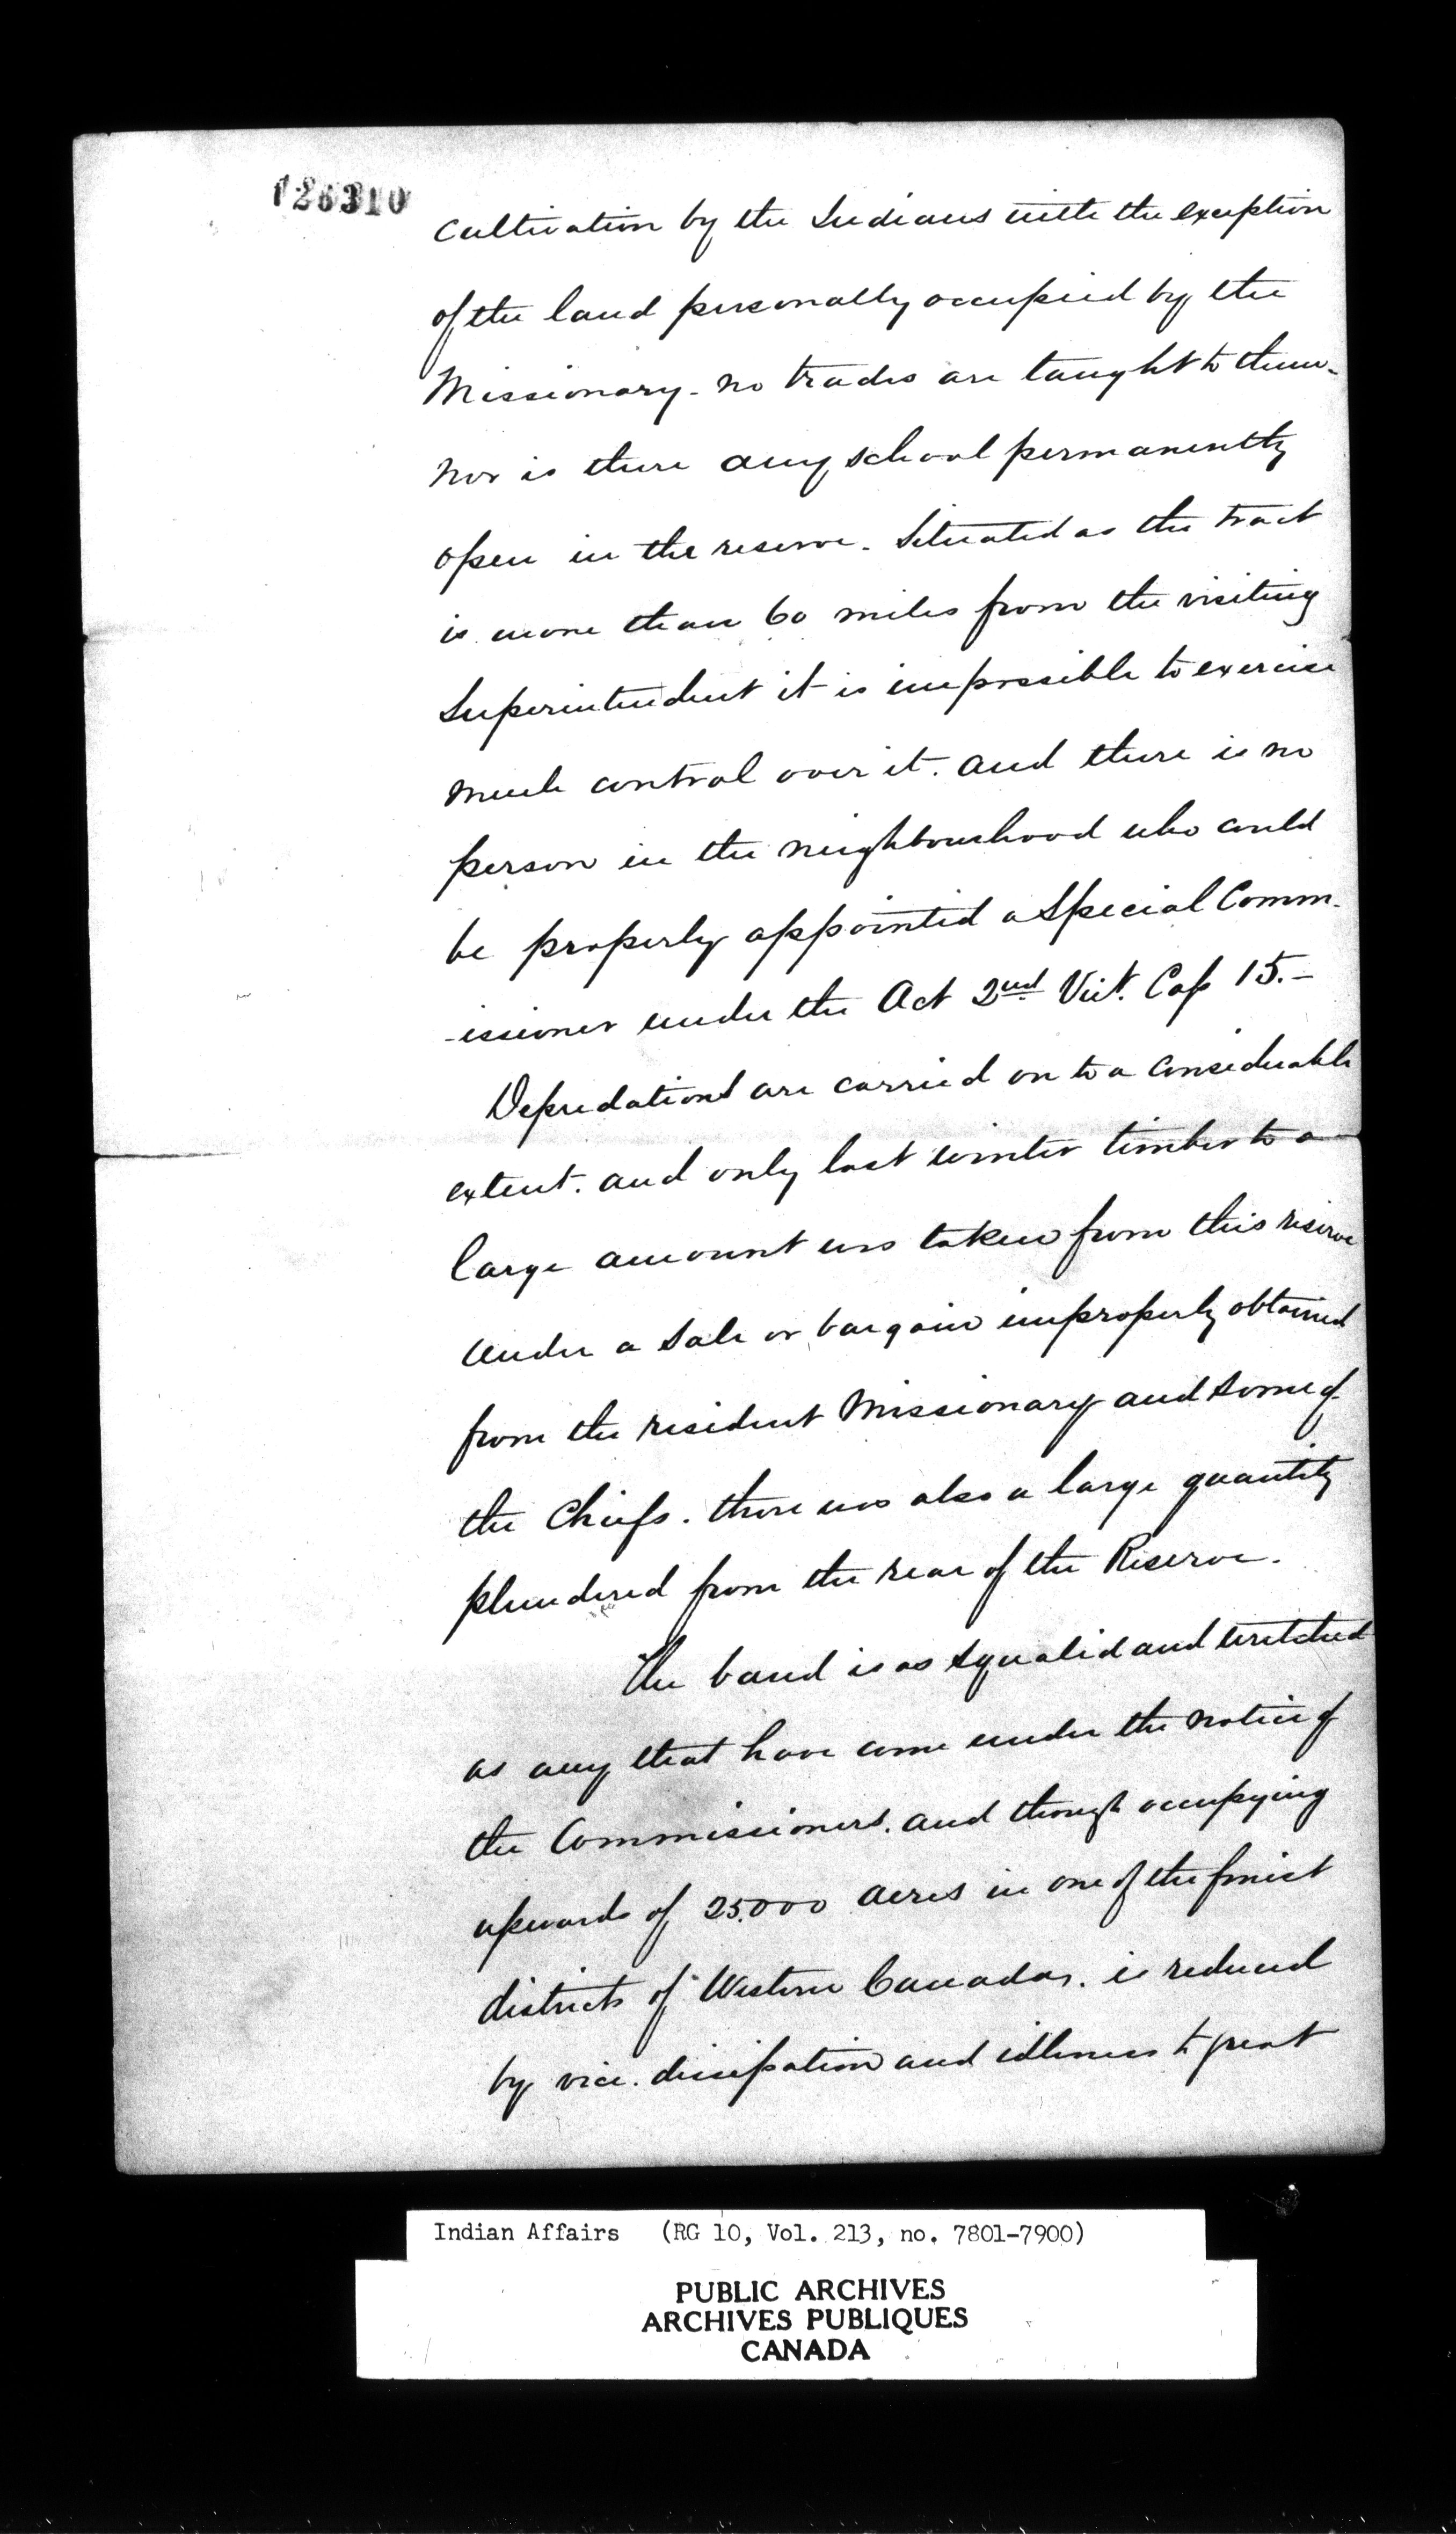 126310
cultivation by the Indians with the exception
of the land personally occupied by the
Missionary - no trades are taught to them -
nor is there any school permanently
open in the reserve. Situated as the tract
is more than 60 miles from the visiting
Superintendent it is impossible to exercise
much control over it. and there is no
person in the neighbourhood who could
be properly appointed a Special Comm-
-issioner under the Act 2nd Vict. Cap 15. -
Depredations are carried on to a considerable
extent. and only last winter timber to a
large amount was taken from this reserve
under a sale or bargain improperly obtained
from the resident Missionary and some of
the Chiefs. there was also a large quantity
plundered from the rear of the Reserve.
The band is as squalid and wretched
as any that have come under the notice of
the Commissioners. and though occupying
upwards of 25.000 acres in one of the finest
districts of Western Canada. is reduced
by vice. dissipation and idleness to great
Indian Affairs (RG 10, Vol. 213, no. 7801-7900)
PUBLIC ARCHIVES
ARCHIVES PUBLIQUES
CANADA